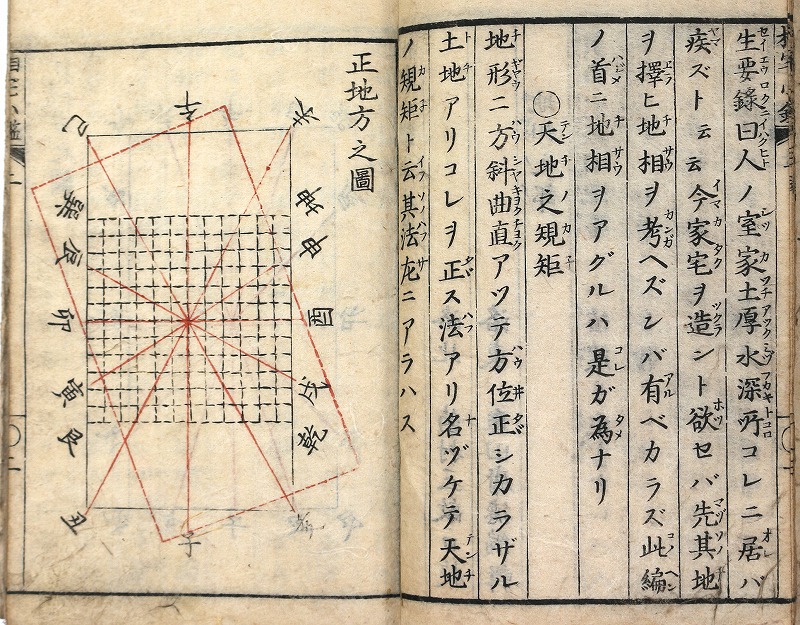 生要錄曰人ノ室家土厚水深所コレニ居バ
疾ズト云云今家宅ヲ造ント欲セバ先其地
ヲ擇ヒ地相ヲ考ヘズンバ有ベカラズ此編
ノ首ニ地相ヲアグルハ是ガ為ナリ
○天地之規矩
地形ニ方斜曲直アツテ方位正シカラザル
土地アリコレヲ正ス法アリ名ヅケテ天地
ノ規矩ト云其法左ニアラハス
正地方之圖
午
未
坤
申
酉
戌
乾
亥
子
丑
艮
寅
卯
辰
巽
巳